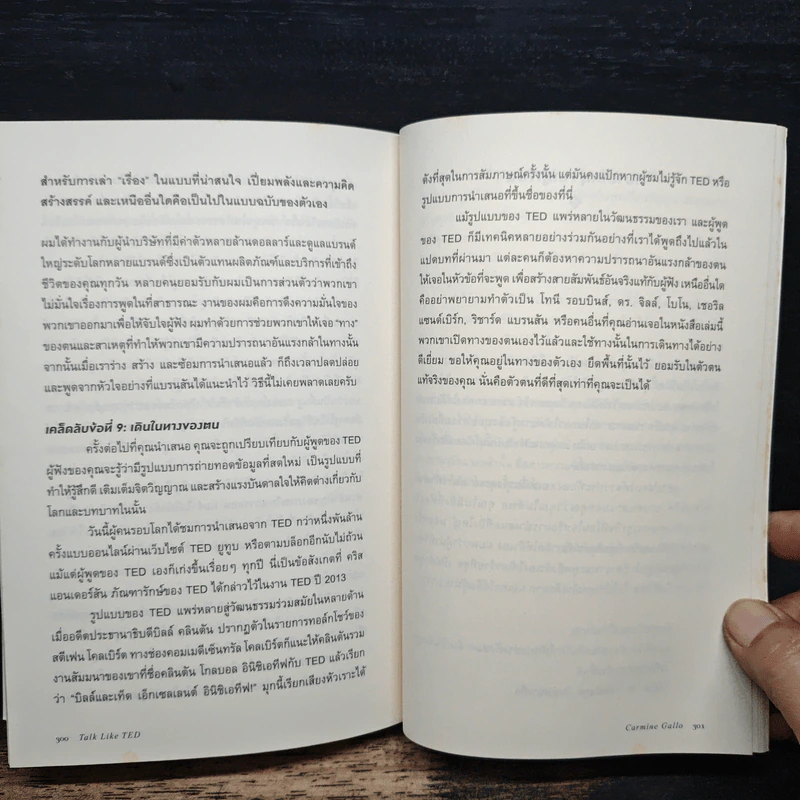 สำหรับการเล่า “เรื่อง” ในแบบที่น่าสนใจ เปี่ยมพลังและความคิด
สร้างสรรค์ และเหนืออื่นใดคือเป็นไปในแบบฉบับของตัวเอง
ผมได้ทำงานกับผู้นำบริษัทที่มีค่าตัวหลายล้านดอลลาร์และดูแลแบรนด์
ใหญ่ระดับโลกหลายแบรนด์ซึ่งเป็นตัวแทนผลิตภัณฑ์และบริการที่เข้าถึง
ชีวิตของคุณทุกวัน หลายคนยอมรับกับผมเป็นการส่วนตัวว่าพวกเขา
ไม่มั่นใจเรื่องการพูดในที่สาธารณะ งานของผมคือการดึงความมั่นใจของ
พวกเขาออกมาเพื่อให้จับใจผู้ฟัง ผมทำด้วยการช่วยพวกเขาให้เจอ “ทาง”
ของตนและสาเหตุที่ทำให้พวกเขามีความปรารถนาอันแรงกล้าในทางนั้น
จากนั้นเมื่อเราร่าง สร้าง และซ้อมการนำเสนอแล้ว ก็ถึงเวลาปลดปล่อย
และพูดจากหัวใจอย่างที่แบรนสันได้แนะนำไว้ วิธีนี้ไม่เคยพลาดเลยครับ
เคล็ดลับข้อที่ 9: เดินในทางของตน
ครั้งต่อไปที่คุณนำเสนอ คุณจะถูกเปรียบเทียบกับผู้พูดของ TED
ผู้ฟังของคุณจะรู้ว่ามีรูปแบบการถ่ายทอดข้อมูลที่สดใหม่ เป็นรูปแบบที่
ทำให้รู้สึกดี เติมเต็มจิตวิญญาณ และสร้างแรงบันดาลใจให้คิดต่างเกี่ยวกับ
โลกและบทบาทในนั้น
วันนี้ผู้คนรอบโลกได้ชมการนำเสนอจาก TED กว่าหนึ่งพันล้าน
ครั้งแบบออนไลน์ผ่านเว็บไซต์ TED ยูทูบ หรือตามบล็อกอีกนับไม่ถ้วน
แม้แต่ผู้พูดของ TED เองก็เก่งขึ้นเรื่อยๆ ทุกปี นี่เป็นข้อสังเกตที่ คริส
แอนเดอร์สัน ภัณฑารักษ์ของ TED ได้กล่าวไว้ในงาน TED ปี 2013
รูปแบบของ TED แพร่หลายสู่วัฒนธรรมร่วมสมัยในหลายด้าน
เมื่ออดีตประธานาธิบดีบิลล์ คลินตัน ปรากฏตัวในรายการทอล์กโชว์ของ
สตีเฟน โคลเบิร์ต ทางช่องคอมเมดีเซ็นทรัล โคลเบิร์ตก็แนะให้คลินตันรวม
งานสัมมนาของเขาที่ชื่อคลินตัน โกลบอล อินิชิเอทีฟกับ TED แล้วเรียก
ว่า “บิลล์และเท็ด เอ็กเซลเลนต์ อินิชิเอทีฟ!” มุกนี้เรียกเสียงหัวเราะได้
๖๐๐ Talk Like TED
ดังที่สุดในการสัมภาษณ์ครั้งนั้น แต่มันคงแป้กหากผู้ชมไม่รู้จัก TED หรือ
รูปแบบการนำเสนอที่ขึ้นชื่อของที่นี่
แม้รูปแบบของ TED แพร่หลายในวัฒนธรรมของเรา และผู้พูด
ของ TED ก็มีเทคนิคหลายอย่างร่วมกันอย่างที่เราได้พูดถึงไปแล้วใน
แปดบทที่ผ่านมา แต่ละคนก็ต้องหาความปรารถนาอันแรงกล้าของตน
ให้เจอในหัวข้อที่จะพูด เพื่อสร้างสายสัมพันธ์อันจริงแท้กับผู้ฟัง เหนืออื่นใด
คืออย่าพยายามทำตัวเป็น โทนี รอบบินส์, ดร. จิลล์, โบโน, เชอริล
แซนด์เบิร์ก, ริชาร์ด แบรนสัน หรือคนอื่นที่คุณอ่านเจอในหนังสือเล่มนี้
พวกเขาเปิดทางของตนเองไว้แล้วและใช้ทางนั้นในการเดินทางได้อย่าง
ดีเยี่ยม ขอให้คุณอยู่ในทางของตัวเอง ยึดพื้นที่นั้นไว้ ยอมรับในตัวตน
แท้จริงของคุณ นั่นคือตัวตนที่ดีที่สุดเท่าที่คุณจะเป็นได้
Carmine Gallo